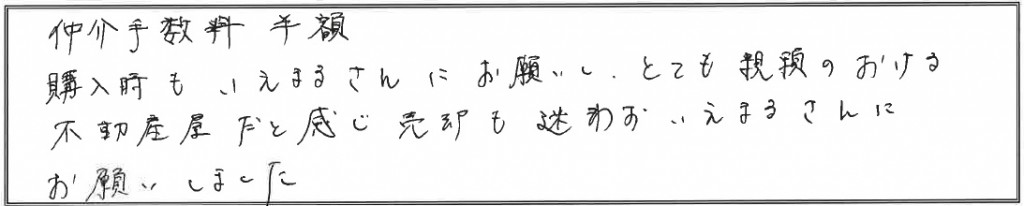 仲介手数料 半額
購入時も いえまるさんに お願いし、とても 親頼の おける
不動産屋 だと 感じ 売却も 迷わず いえまるさんに
お願い しました